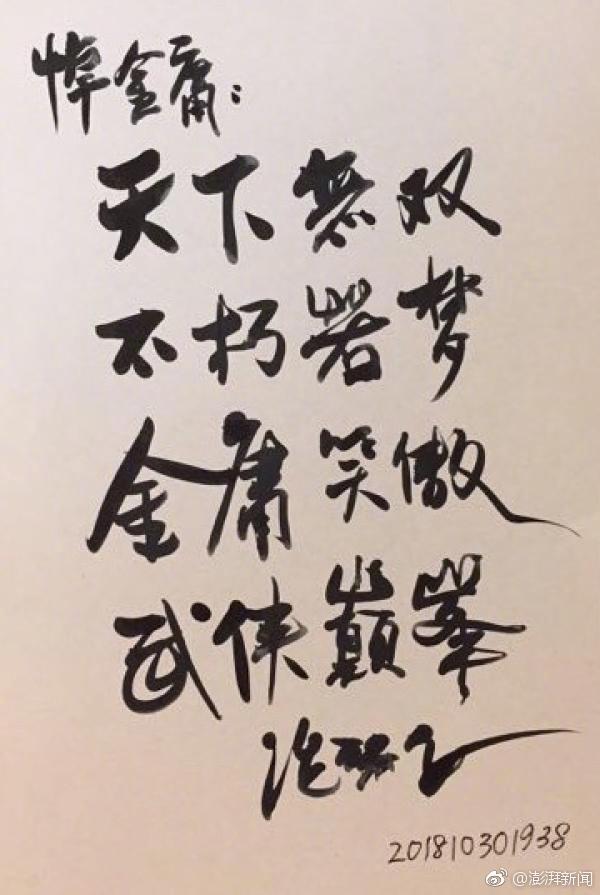 悼金庸：
天下無双
不朽若梦
金庸笑傲
武侠巔峯
201810301938
@澎湃新闻